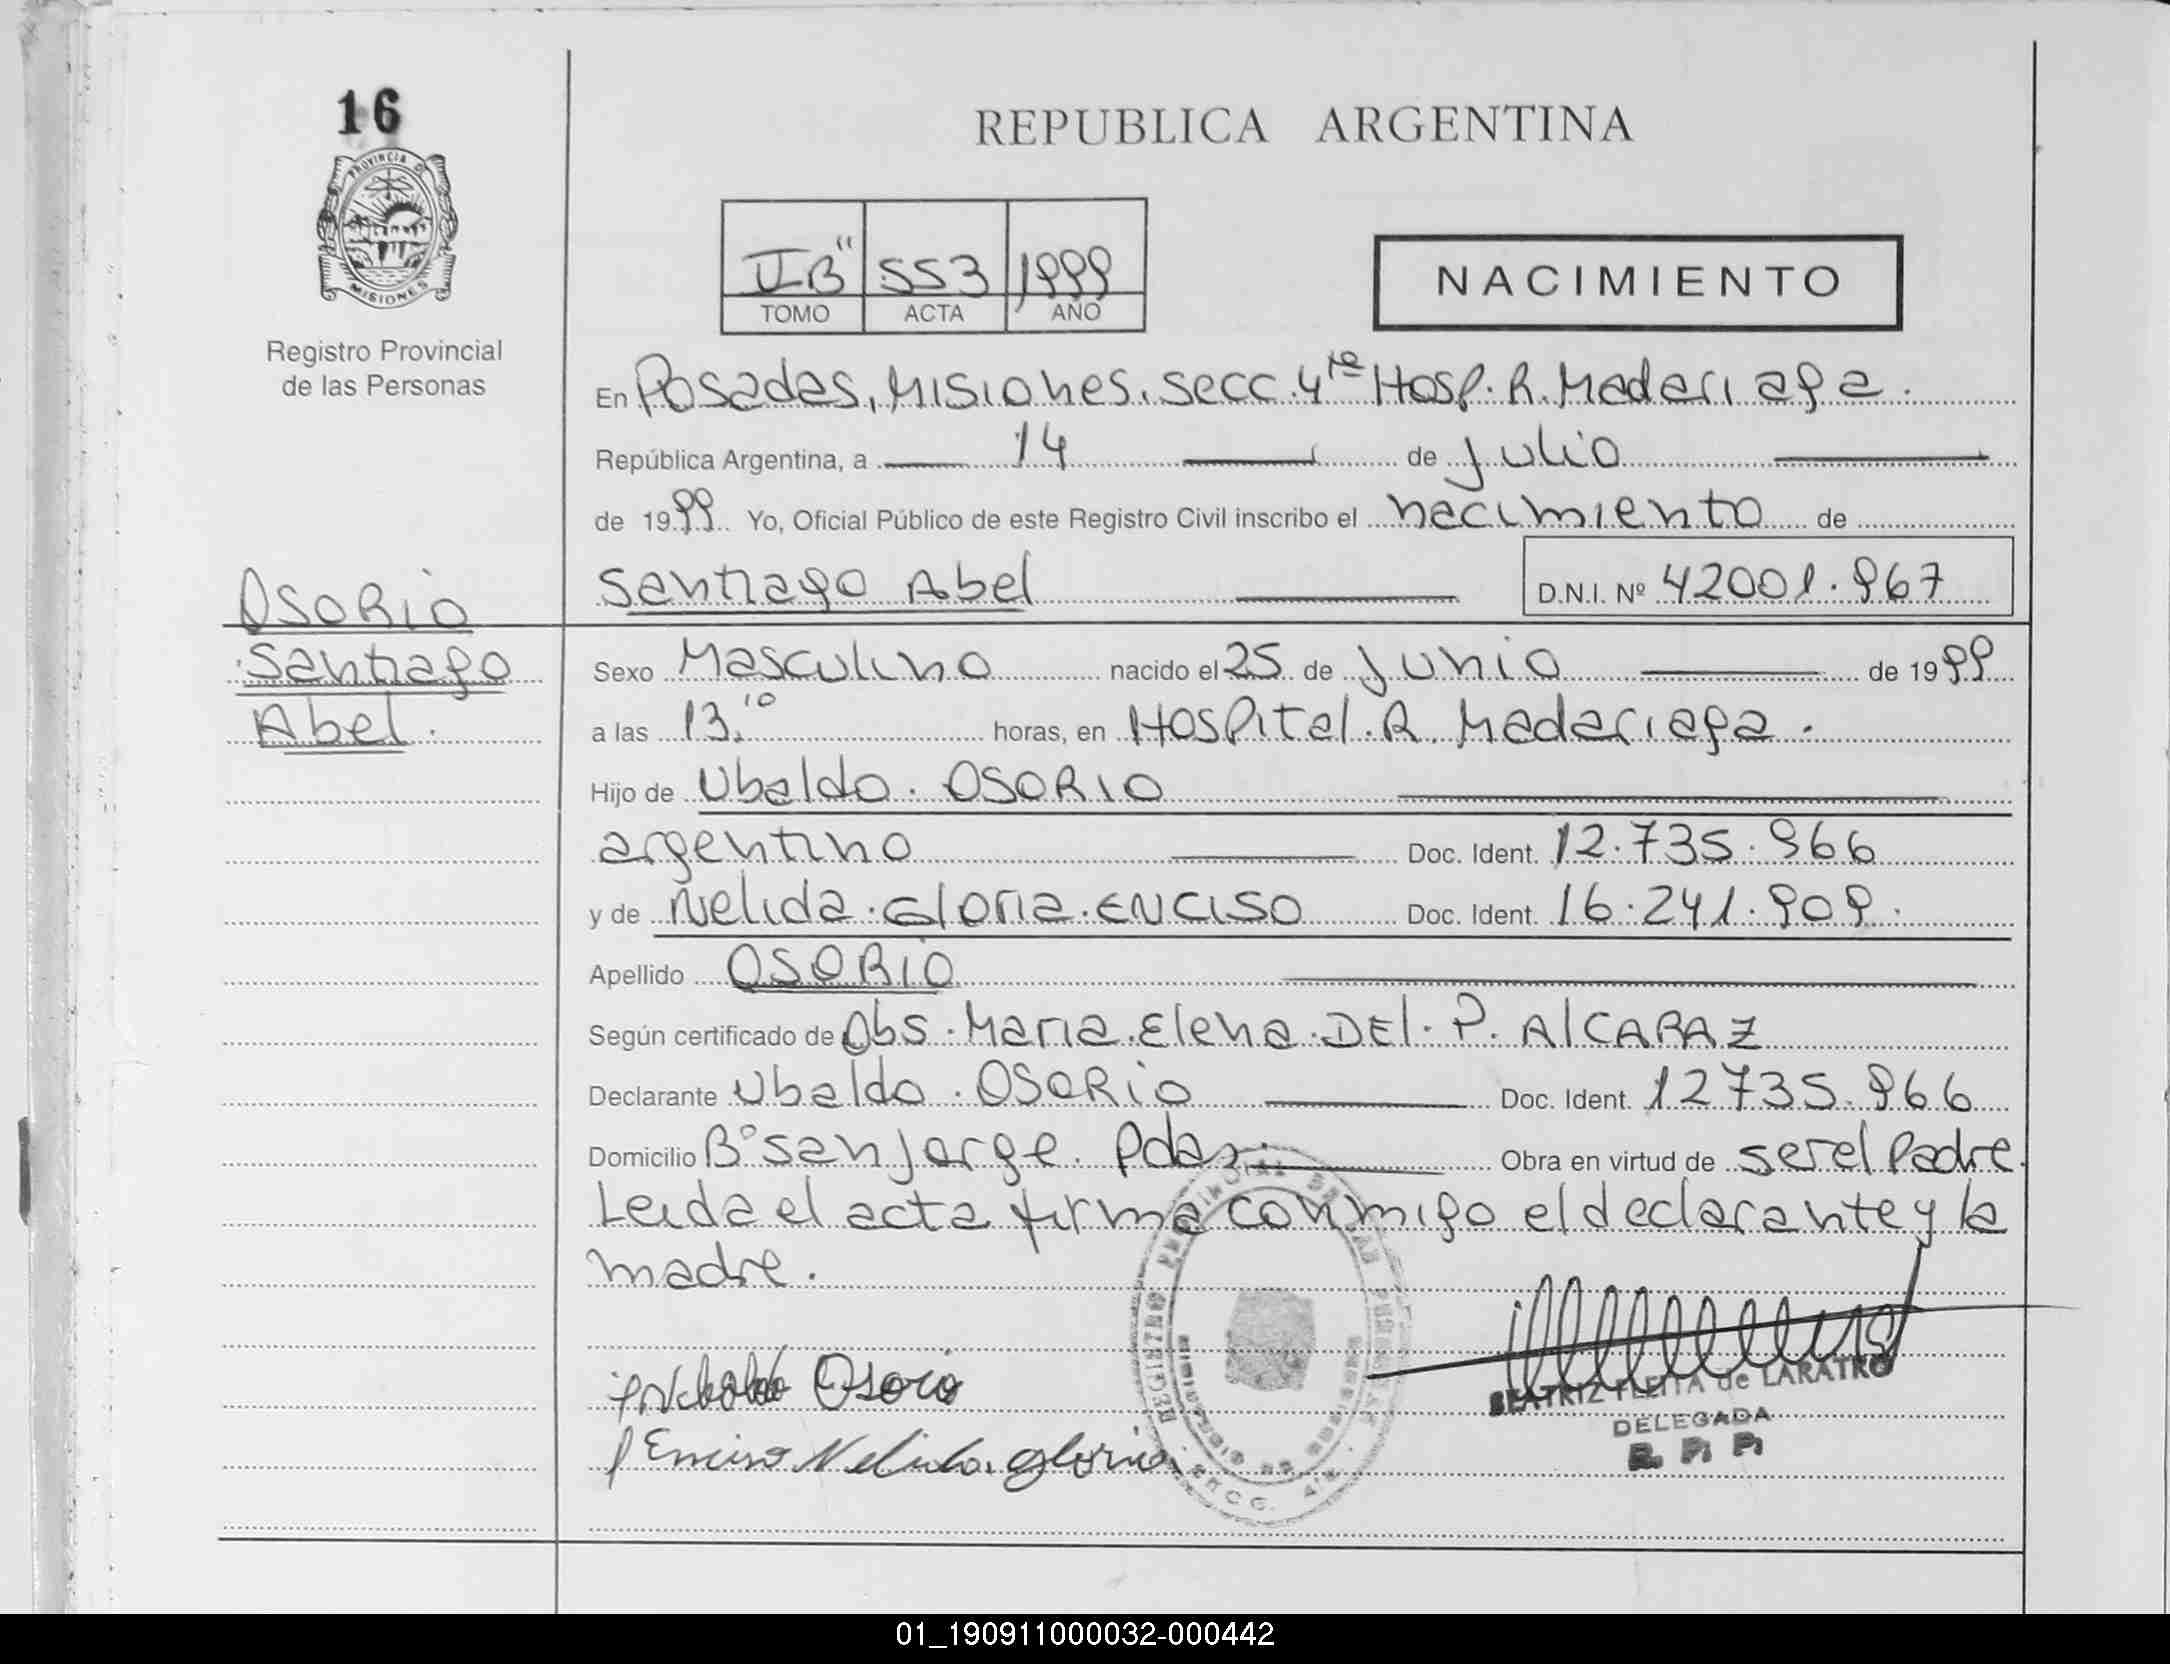 16
REPUBLICA ARGENTINA
PROVINCIA DE
MISIONES
Registro Provincial
de las Personas
II B" 553 1999
TOMO ACTA AÑO
NACIMIENTO
En Posadas, Misiones. secc. 4ta Hosp. R. Madariaga.
República Argentina, a 14 de Julio
de 1999 Yo, Oficial Público de este Registro Civil inscribo el nacimiento de
Santiago Abel D.N.I. Nº 42001.967
OSORIO
Santiago
Abel.
Sexo Masculino nacido el 25 de Junio de 1999
a las 13,10 horas, en Hospital. R. Madariaga.
Hijo de Ubaldo. OSORIO
argentino Doc. Ident. 12.735.966
y de Nelida. Gloria. ENCISO Doc. Ident. 16.241.909.
Apellido OSORIO
Según certificado de Obs. Maria. Elena. DEL. P. AlCARAZ
Declarante Ubaldo. OSORIO Doc. Ident. 12735.966
Domicilio Bº San Jorge. Pdas. Obra en virtud de ser el Padre.
Leida el acta firma conmigo el declarante y la
madre.
Osorio
Enciso Nelida. gloria
BEATRIZ FLEITA de LARATRO
DELEGADA
R. P. P.
01_190911000032-000442